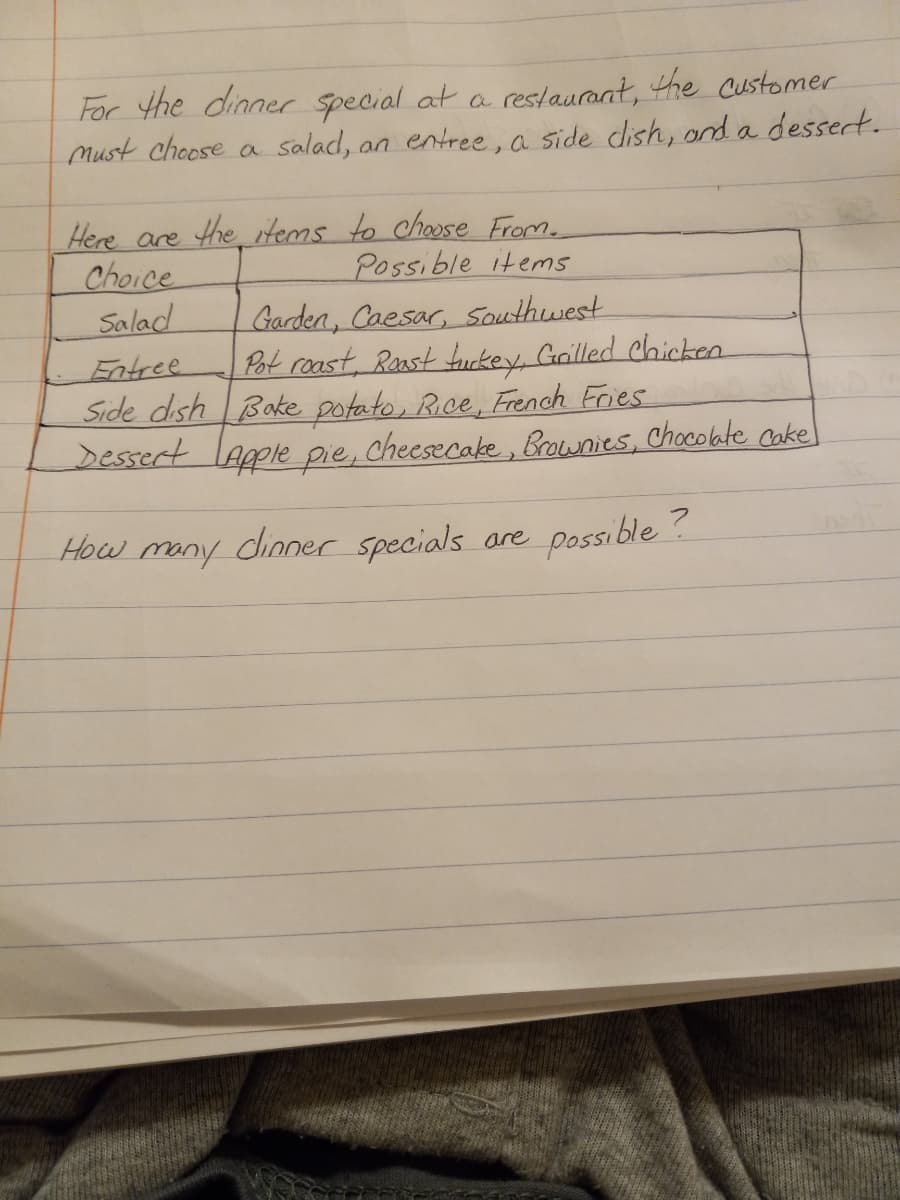 For the dinner special at a restaurant, the customer
must choose a salad, an entree, a side dish, and a dessert.
Here are the items to choose From.
Choice Possible items
Salad Garden, Caesar, Southwest
Entree Pot roast, Roast turkey, Grilled Chicken
Side dish Bake potato, Rice, French Fries
Dessert Apple pie, Cheesecake, Brownies, Chocolate cake
How many dinner specials are possible?